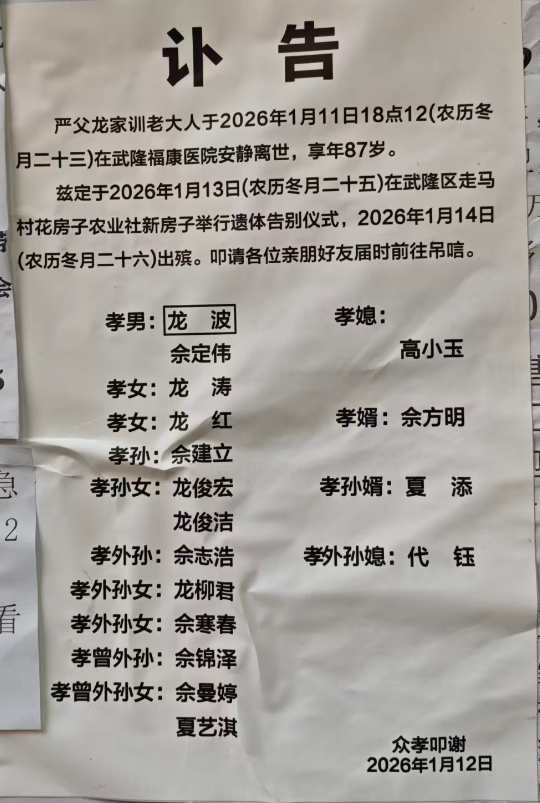 讣 告
严父龙家训老大人于2026年1月11日18点12(农历冬
月二十三)在武隆福康医院安静离世，享年87岁。
兹定于2026年1月13日(农历冬月二十五)在武隆区走马
村花房子农业社新房子举行遗体告别仪式，2026年1月14日
(农历冬月二十六)出殡。叩请各位亲朋好友届时前往吊唁。
孝男：龙 波 孝媳：
佘定伟 高小玉
孝女：龙 涛
孝女：龙 红 孝婿：佘方明
孝孙：佘建立
孝孙女：龙俊宏 孝孙婿：夏 添
龙俊洁
孝外孙：佘志浩 孝外孙媳：代 钰
孝外孙女：龙柳君
孝外孙女：佘寒春
孝曾外孙：佘锦泽
孝曾外孙女：佘曼婷
夏艺淇
众孝叩谢
2026年1月12日
急
2
看
会